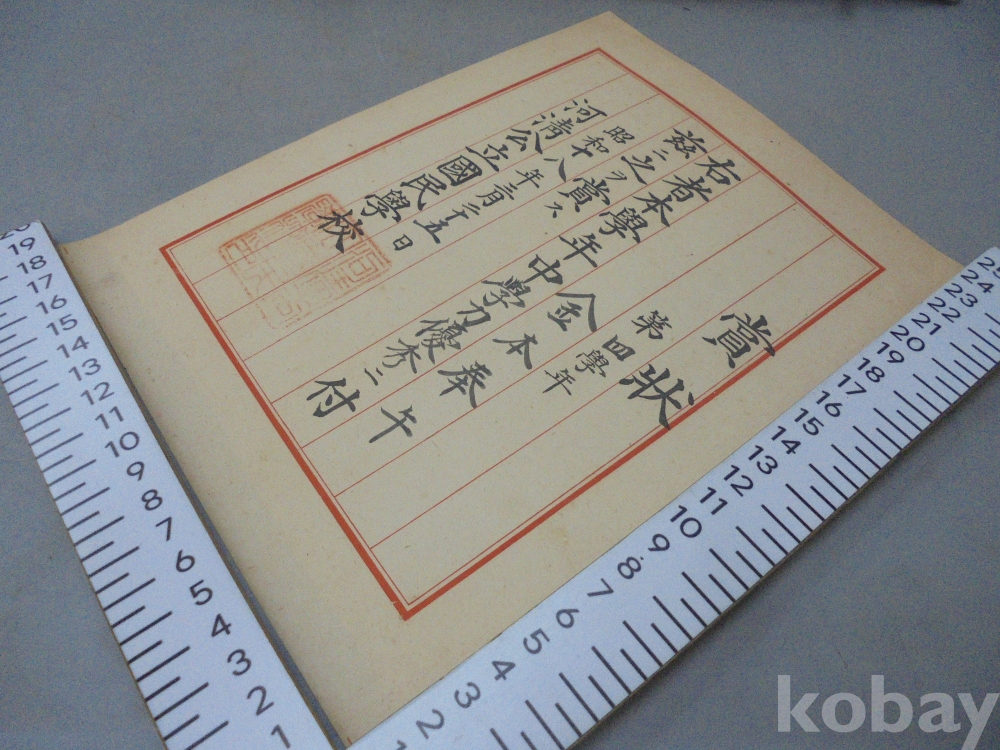 賞狀
第四學年
金本奉午
右者本學年中學力優秀ニ付
茲ニ之ヲ賞ス
昭和十八年三月二十五日
河淸公立國民學校
20 19 18 17 16 15 14 13 12 11 10 9 8 7 6 5 4 3 2 1
1 2 3 4 5 6 7 8 9 10 11 12 13 14 15 16 17 18 19 20 21 22 23 24 25
kobay